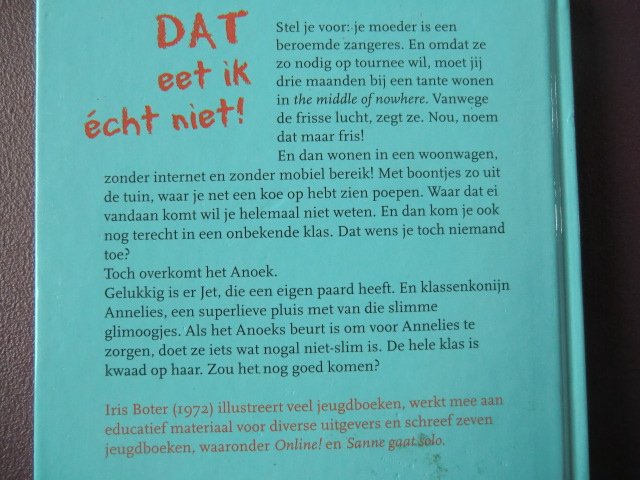 DAT
eet ik
écht niet!
Stel je voor: je moeder is een
beroemde zangeres. En omdat ze
zo nodig op tournee wil, moet jij
drie maanden bij een tante wonen
in the middle of nowhere. Vanwege
de frisse lucht, zegt ze. Nou, noem
dat maar fris!
En dan wonen in een woonwagen,
zonder internet en zonder mobiel bereik! Met boontjes zo uit
de tuin, waar je net een koe op hebt zien poepen. Waar dat ei
vandaan komt wil je helemaal niet weten. En dan kom je ook
nog terecht in een onbekende klas. Dat wens je toch niemand
toe?
Toch overkomt het Anoek.
Gelukkig is er Jet, die een eigen paard heeft. En klassenkonijn
Annelies, een superlieve pluis met van die slimme
glimoogjes. Als het Anoeks beurt is om voor Annelies te
zorgen, doet ze iets wat nogal niet-slim is. De hele klas is
kwaad op haar. Zou het nog goed komen?
Iris Boter (1972) illustreert veel jeugdboeken, werkt mee aan
educatief materiaal voor diverse uitgevers en schreef zeven
jeugdboeken, waaronder Online! en Sanne gaat solo.